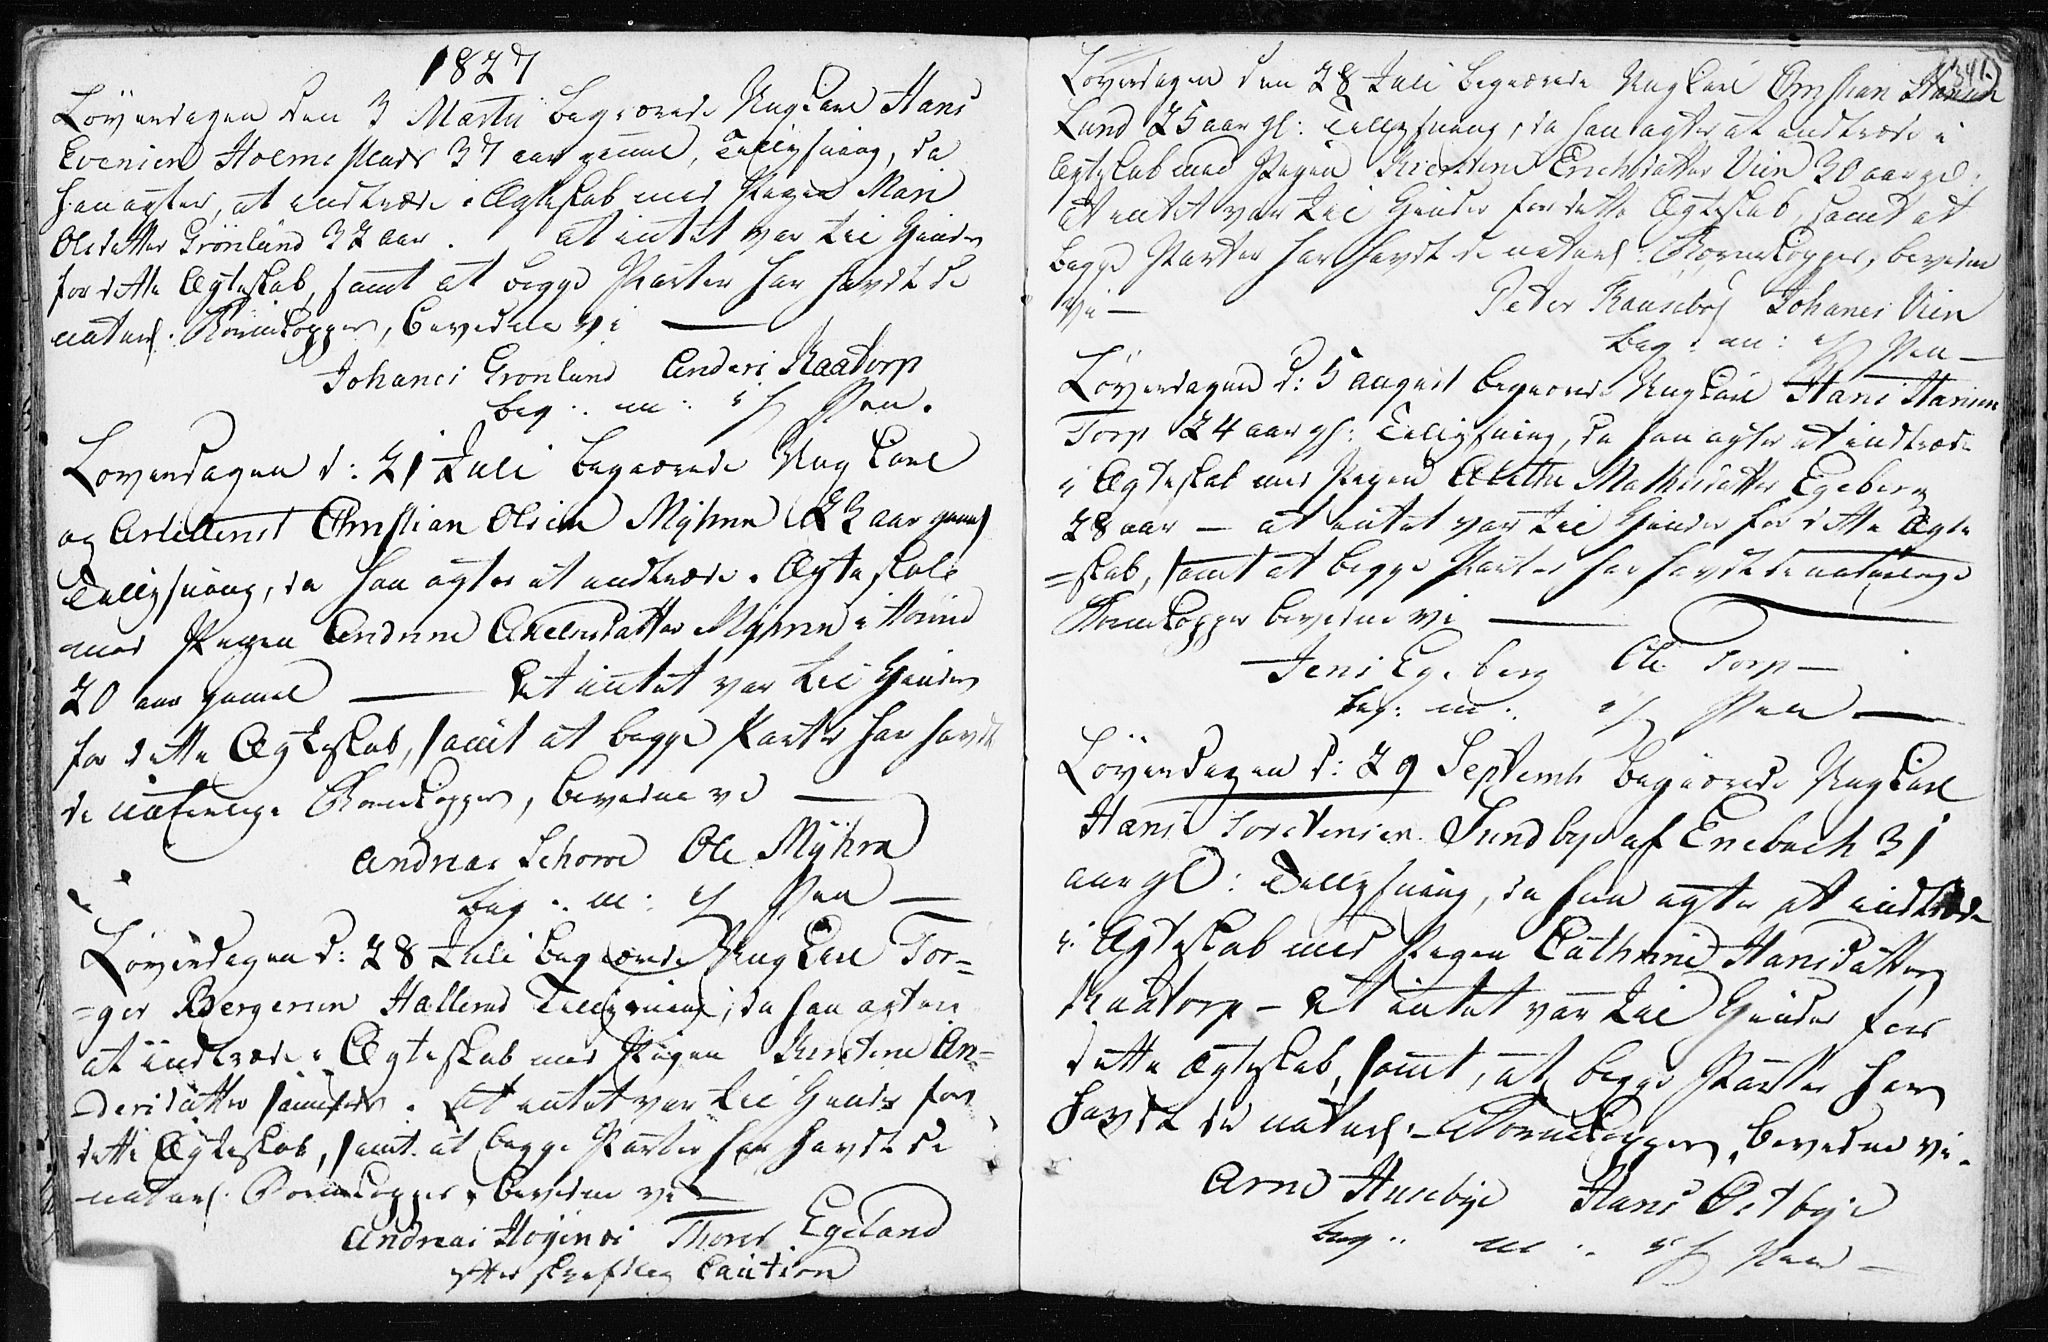 1827
Løverdagen den 3 Martii begiærede Ungkarl Hans
Evensen Holmestads 37 aar gammel, Tillysning, da
han agter, at indtræde i Ægteskab med Pigen Mari
Olsdatter Grönlund 32 aar. at intet var Lie Hinder
for dette Ægteskab, samt at begge Parter har havdt de
naturl. Börnekopper, bevidne vi —
Johanes Grönlund Anders Raatorp
beg: m: i f Pen.
Loverdagen d: 21 Juli begiærede Ungkarl
og Artillerist Christian Olsen Myhren 22 aar gaml
Tillysning, da han agter at indtræde i Ægteskab
med Pigen Andrine Axelsdatter Myhren i
20 aar gamel — At intet var Lie Hinder
for dette Ægteskab, samt at begge Parter har havdt
de naturlige Bornekopper, bevidne vi —
Andreas Ole Myhra
beg: m: i f Pen —
Løverdagen d: 28 Juli begiærede Ungkarl Tor=
=ger Bergersen Hallerud Tillysning, da han agter
at indtræde i Ægteskab med Pigen Kirstine An=
dersdatter samsteds. At intet var Lie Hinder for
dette Ægteskab, samt at begge Parter har havdt de
naturl. Bornekopper, bevidne vi —
Andreas Thorer Egeland
efter skriftlig Caution
341.
Løverdagen den 28 Juli begiærede Ungkarl Christian Hansen
Lund 25 aar gl: Tillysning, da han agter at indtræde i
Ægteskab med Pigen Kirstine Erichsdatter Vien 30 aar gl:
At intet var Lie Hinder for dette Ægteskab, samt at
begge Parter har havdt de naturl: Börnekopper, bevidne
vi —
Peter Johanes Vien
beg: m: i f Pen —
Løverdagen d: 5 august begiærede Ungkarl Hans Hansen
Torp 24 aar gl: Tillysning, da han agter at indtræde
i Ægteskab med Pigen Mathisdatter Egeberg
28 aar — at intet var Lie Hinder for dette Ægte
=skab, samt at begge Parter har havdt de naturlige
Bornekopper bevidne vi —
Jens Egeberg Ole Torp —
beg: m: i f Pen —
Løverdagen d: 29 Septemb begiærede Ungkarl
Hans Torstensen Sundbye af Enebach 31
aar gl: Tillysning, da han agter at indtræde
i Ægteskab med Pigen Cathrine Hansdatter
Raatorp — At intet var Lie Hinder for
dette Ægteskab, samt, at begge Parter har
havdt de naturl: Bornekopper, bevidne vi.
Arne Husebye Hans Østbye
beg: m: i f Pen —